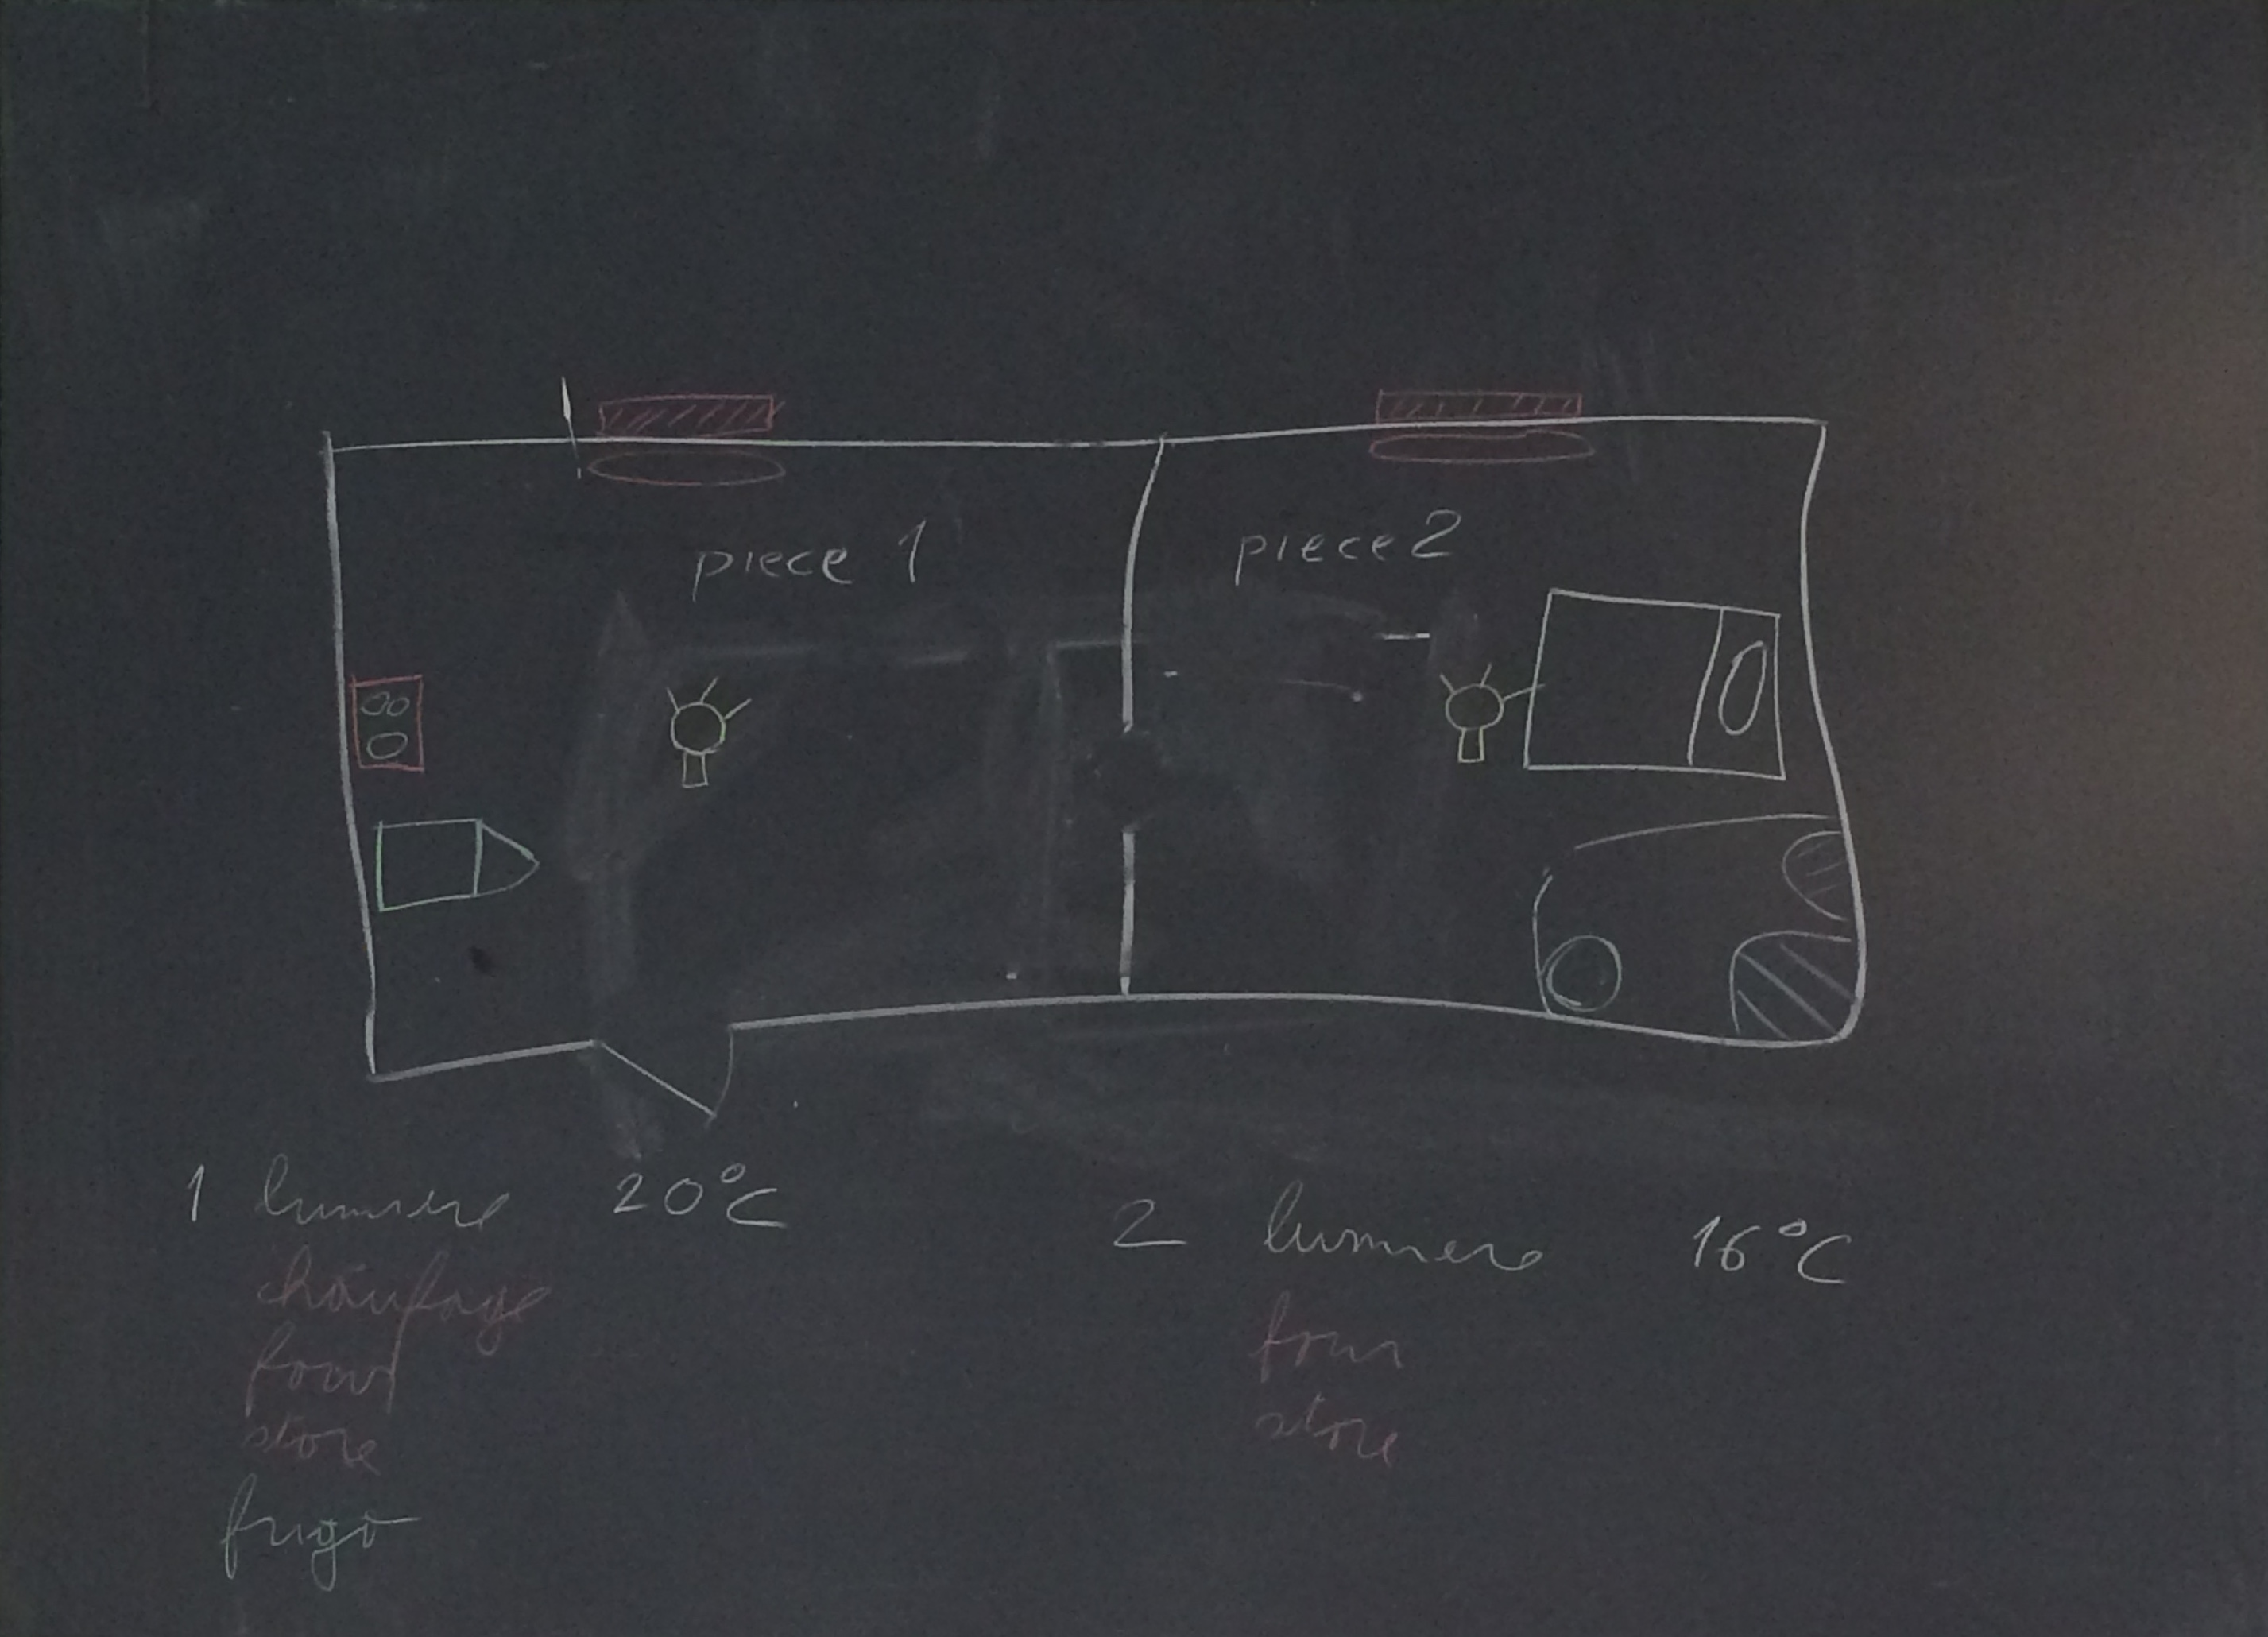 piece 1
piece 2
1 lumiere 20°C
chaufage
four
store
frigo
2 lumiere 16°C
four
store